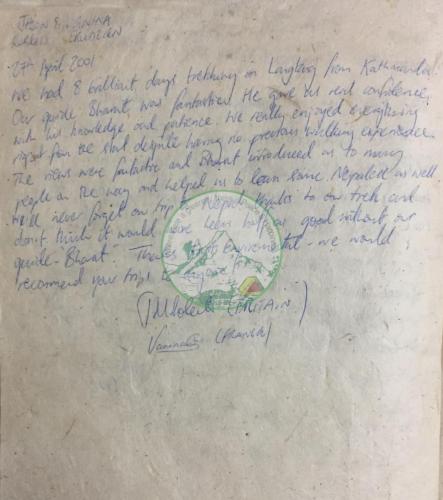 JASON &
27th April 2001
We had 8 brilliant days trekking in Langtang from Kathmandu.
Our guide, Bharat, was fantastic. He gave us real confidence
with his knowledge and patience. We really enjoyed everything
right from the start despite having no previous walking experience.
The views were fantastic and Bharat introduced us to many
people on the way and helped us to learn some Nepalese as well.
We'll never forget our trip to Nepal thanks to our trek and
don't think it would have been half as good without our
guide - Bharat. Thanks - we would
recommend your trips to anyone!
(BRITAIN)
(FRANCE)